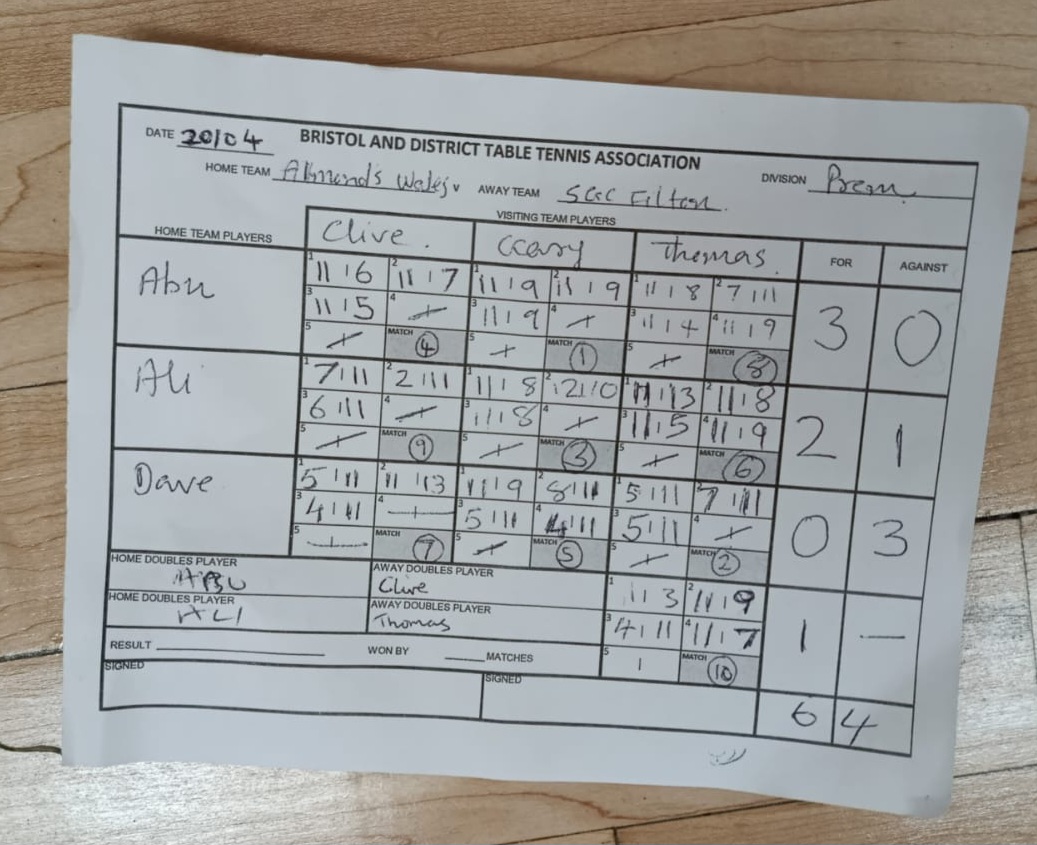 DATE 20/04 BRISTOL AND DISTRICT TABLE TENNIS ASSOCIATION
HOME TEAM v AWAY TEAM SGC Filton DIVISION Prem
VISITING TEAM PLAYERS
HOME TEAM PLAYERS Clive. Thomas. FOR AGAINST
Abu 1 11 | 6 2 11 | 7 1 11 | 9 2 11 | 9 1 11 | 8 2 7 | 11 3 0
3 11 | 5 4 3 11 | 9 4 3 11 | 4 4 11 | 9
5 MATCH 4 5 MATCH 1 5 MATCH 8
Ali 1 7 | 11 2 2 | 11 1 11 | 8 2 12 | 10 1 11 | 13 2 11 | 8 2 1
3 6 | 11 4 3 11 | 8 4 3 11 | 5 4 11 | 9
5 MATCH 9 5 MATCH 3 5 MATCH 6
Dave 1 5 | 11 2 11 | 13 1 11 | 9 2 8 | 11 1 5 | 11 2 7 | 11 0 3
3 4 | 11 4 3 5 | 11 4 4 | 11 3 5 | 11 4
5 MATCH 7 5 MATCH 5 5 MATCH 2
HOME DOUBLES PLAYER ABU AWAY DOUBLES PLAYER Clive 1 11 3 2 11 | 9 1 —
HOME DOUBLES PLAYER ALI AWAY DOUBLES PLAYER Thomas 3 4 | 11 4 11 | 7
RESULT WON BY MATCHES 5 | MATCH 10
SIGNED SIGNED 6 4